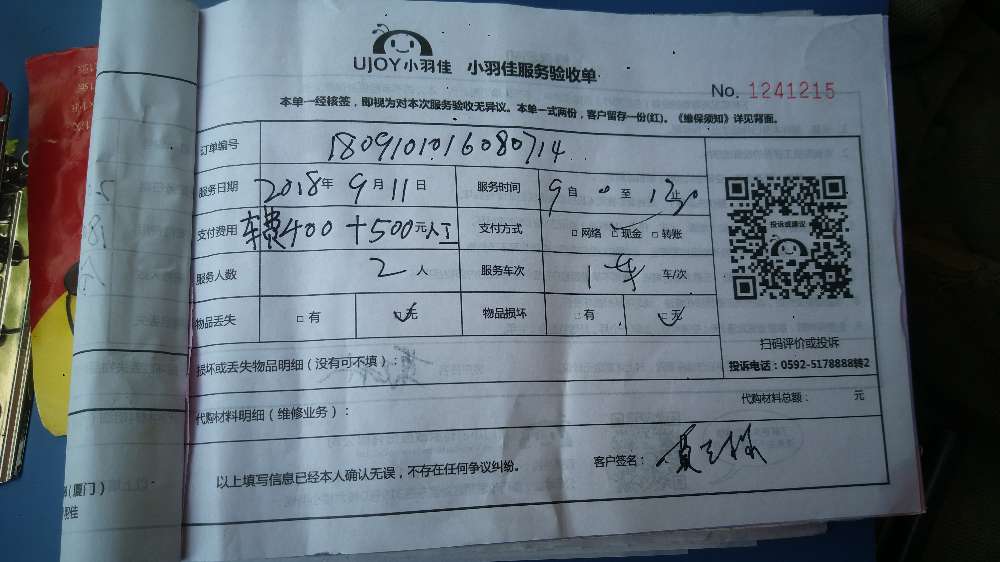 UJOY小羽佳 小羽佳服务验收单
No. 1241215
本单一经核签，即视为对本次服务验收无异议。本单一式两份，客户留存一份(红)。《维保须知》详见背面。
订单编号 1809101016080714
服务日期 2018年9月11日 服务时间 9自 00至 止
支付费用 车费400+500元人工 支付方式 □网络 □现金 □转账
投诉或建议
服务人数 2人 服务车次 1车 车/次
物品丢失 □有 □无 物品损坏 □有 □无
扫码评价或投诉
损坏或丢失物品明细（没有可不填）：
投诉电话：0592-5178888转2
代购材料明细（维修业务）： 代购材料总额： 元
以上填写信息已经本人确认无误，不存在任何争议纠纷。 客户签名：
(厦门)